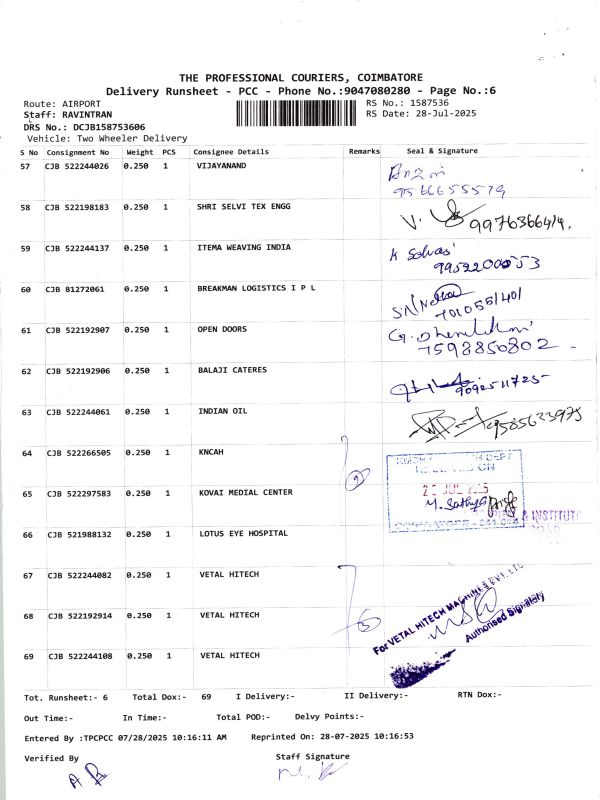 THE PROFESSIONAL COURIERS, COIMBATORE
Delivery Runsheet - PCC - Phone No.:9047080280 - Page No.:6
Route: AIRPORT
RS No.: 1587536
Staff: RAVINTRAN
RS Date: 28-Jul-2025
DRS No.: DCJB158753606
Vehicle: Two Wheeler Delivery
S No Consignment No Weight PCS Consignee Details Remarks Seal & Signature
57 CJB 522244026 0.250 1 VIJAYANAND
58 CJB 522198183 0.250 1 SHRI SELVI TEX ENGG
59 CJB 522244137 0.250 1 ITEMA WEAVING INDIA
9952200053
60 CJB 81272061 0.250 1 BREAKMAN LOGISTICS I P L
61 CJB 522192907 0.250 1 OPEN DOORS
7598850802
62 CJB 522192906 0.250 1 BALAJI CATERES
9092511725
63 CJB 522244061 0.250 1 INDIAN OIL
9585633975
64 CJB 522266505 0.250 1 KNCAH
65 CJB 522297583 0.250 1 KOVAI MEDIAL CENTER
JUL 2025
M. Sathya
& INSTITUTE
66 CJB 521988132 0.250 1 LOTUS EYE HOSPITAL
67 CJB 522244082 0.250 1 VETAL HITECH
For VETAL HITECH MACHINES PVT. LTD
68 CJB 522192914 0.250 1 VETAL HITECH
Authorised Signatory
69 CJB 522244108 0.250 1 VETAL HITECH
Tot. Runsheet:- 6 Total Dox:- 69 I Delivery:- II Delivery:- RTN Dox:-
Out Time:- In Time:- Total POD:- Delvy Points:-
Entered By :TPCPCC 07/28/2025 10:16:11 AM Reprinted On: 28-07-2025 10:16:53
Verified By Staff Signature